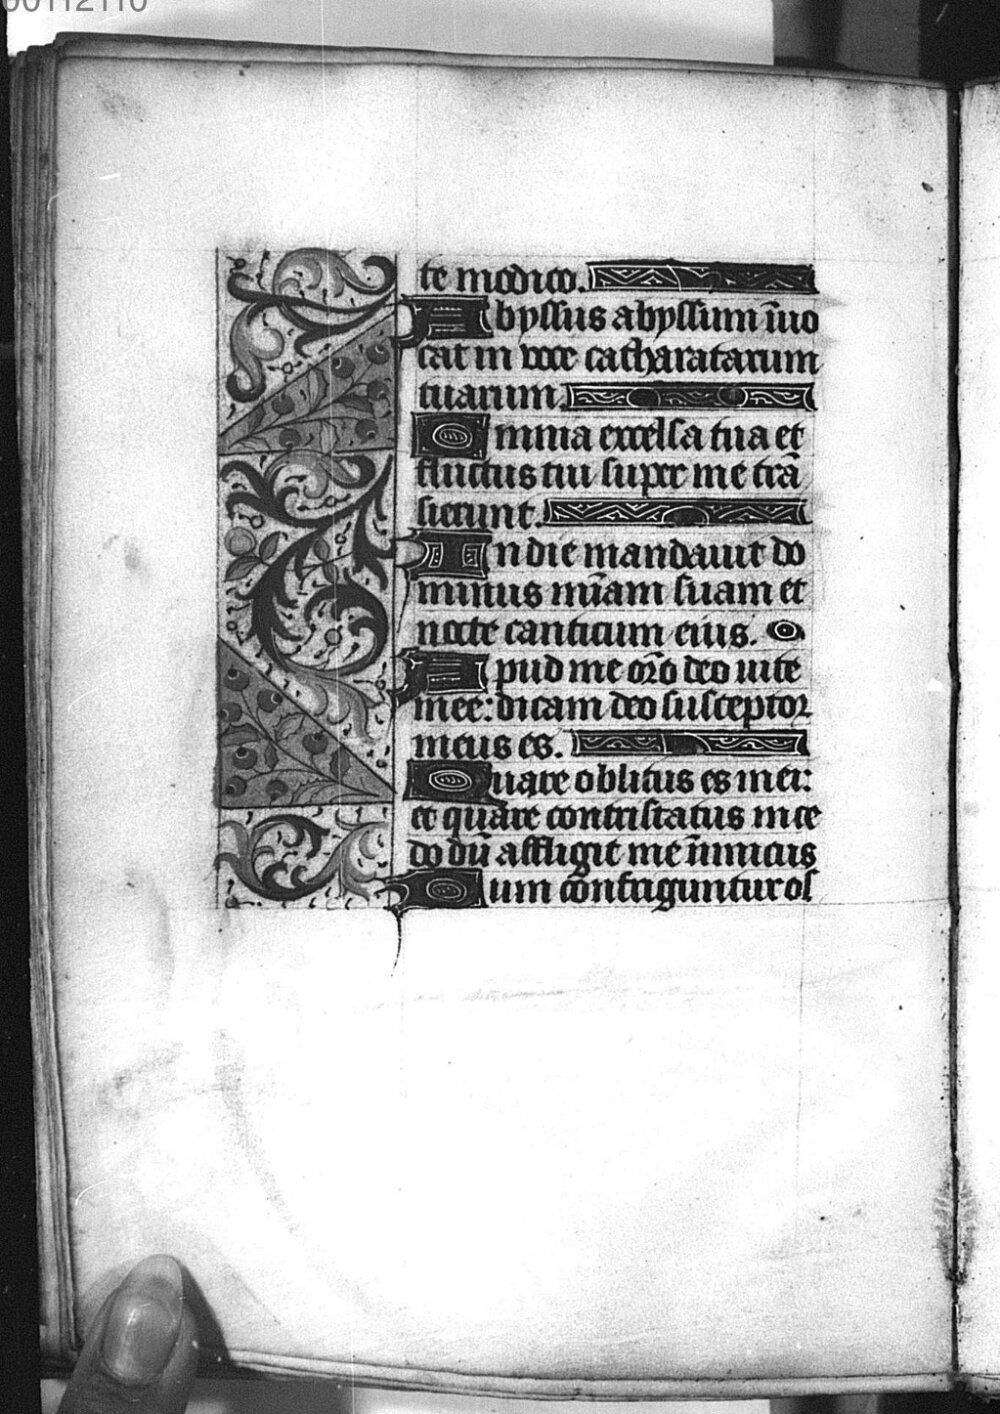 00112110
te modico.
Abyssus abyssum īuo
cat in voce catharatarum
tuarum.
Omnia excelsa tua et
fluctus tui super me trā
sierunt.
In die mandauit do
minus mīam suam et
nocte canticum eius.
Apud me or̄o deo uite
mee: dicam deo susceptor
meus es.
Quare oblitus es mei:
et quare contristatus ince
do dū affligit me īimicus
Dum cōnfriguntur os